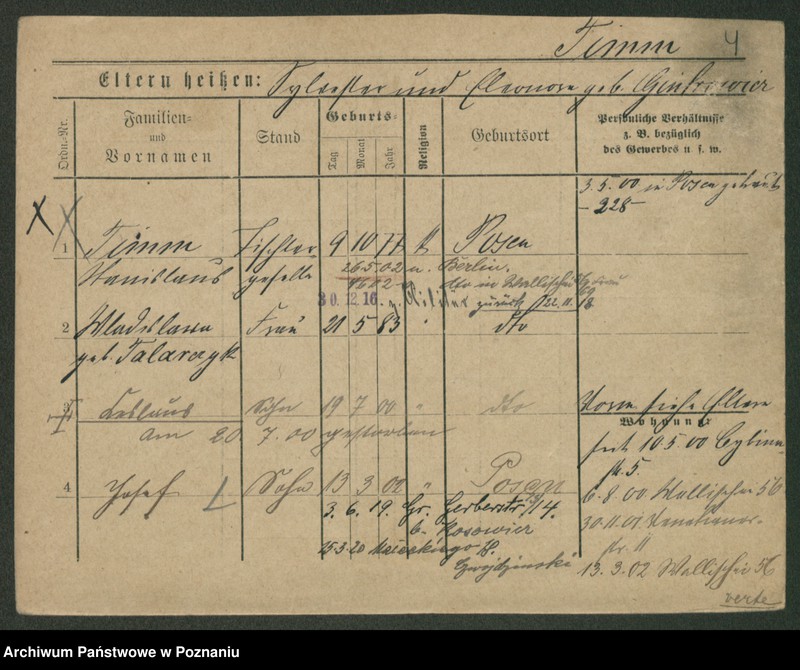 Timm 4
Eltern heißen: Sylvester und Eleonore geb.
Ordn.-Nr.
Familien- und Vornamen
Stand
Geburts-
Tag Monat Jahr
Religion
Geburtsort
Persönliche Verhältnisse
z. B. bezüglich
des Gewerbes u. s. w.
3.5.00 in Posen getraut
- 228 -
1 Timm Tischler 9 10 77 k Posen
Stanislaus geselle 26.5.02 n. Berlin.
dto in Wallischei
30.12.16. z. Militär zurück 22.11.18
2 Wladislawa Frau 21 5 83 " dto
geb. Talarczyk
3 Ceslaus Sohn 19 7 00 " dto
am 20. 7. 00 gestorben
Vorm siehe Eltern
Wohnung:
seit 10.5.00
4 Josef Sohn 13 3 02 " Posen
3. 6. 19. Gr. Gerberstr. 14.
15.3.20
6.8.00 Wallischei 56
30.11.01 Venetianer-
str. 11
13.3.02 Wallischei 56
verte
Archiwum Państwowe w Poznaniu